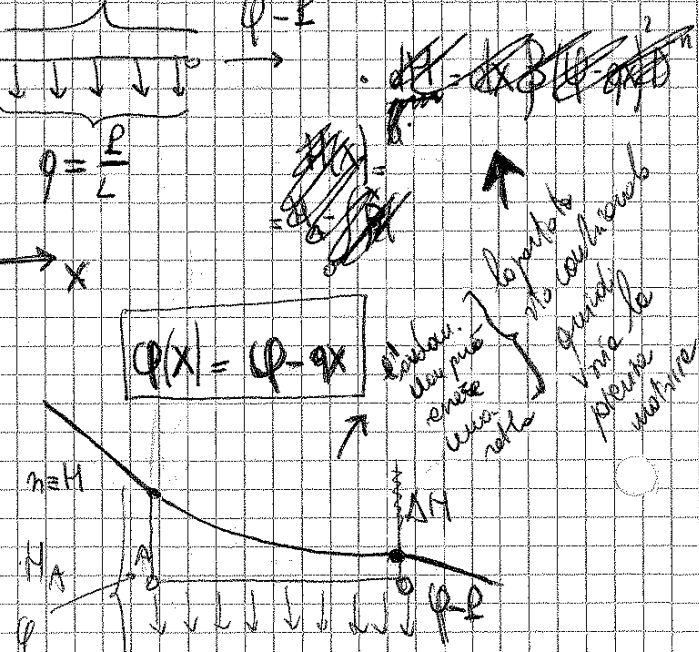 φ-P
q = P
L
X
φ(X) = φ-qx
l'andam.
non può
essere
una
retta
la portata
sta cambiando
quindi
varia la
perdita
n≡H
ΔH
H_A
A
φ-P
φ